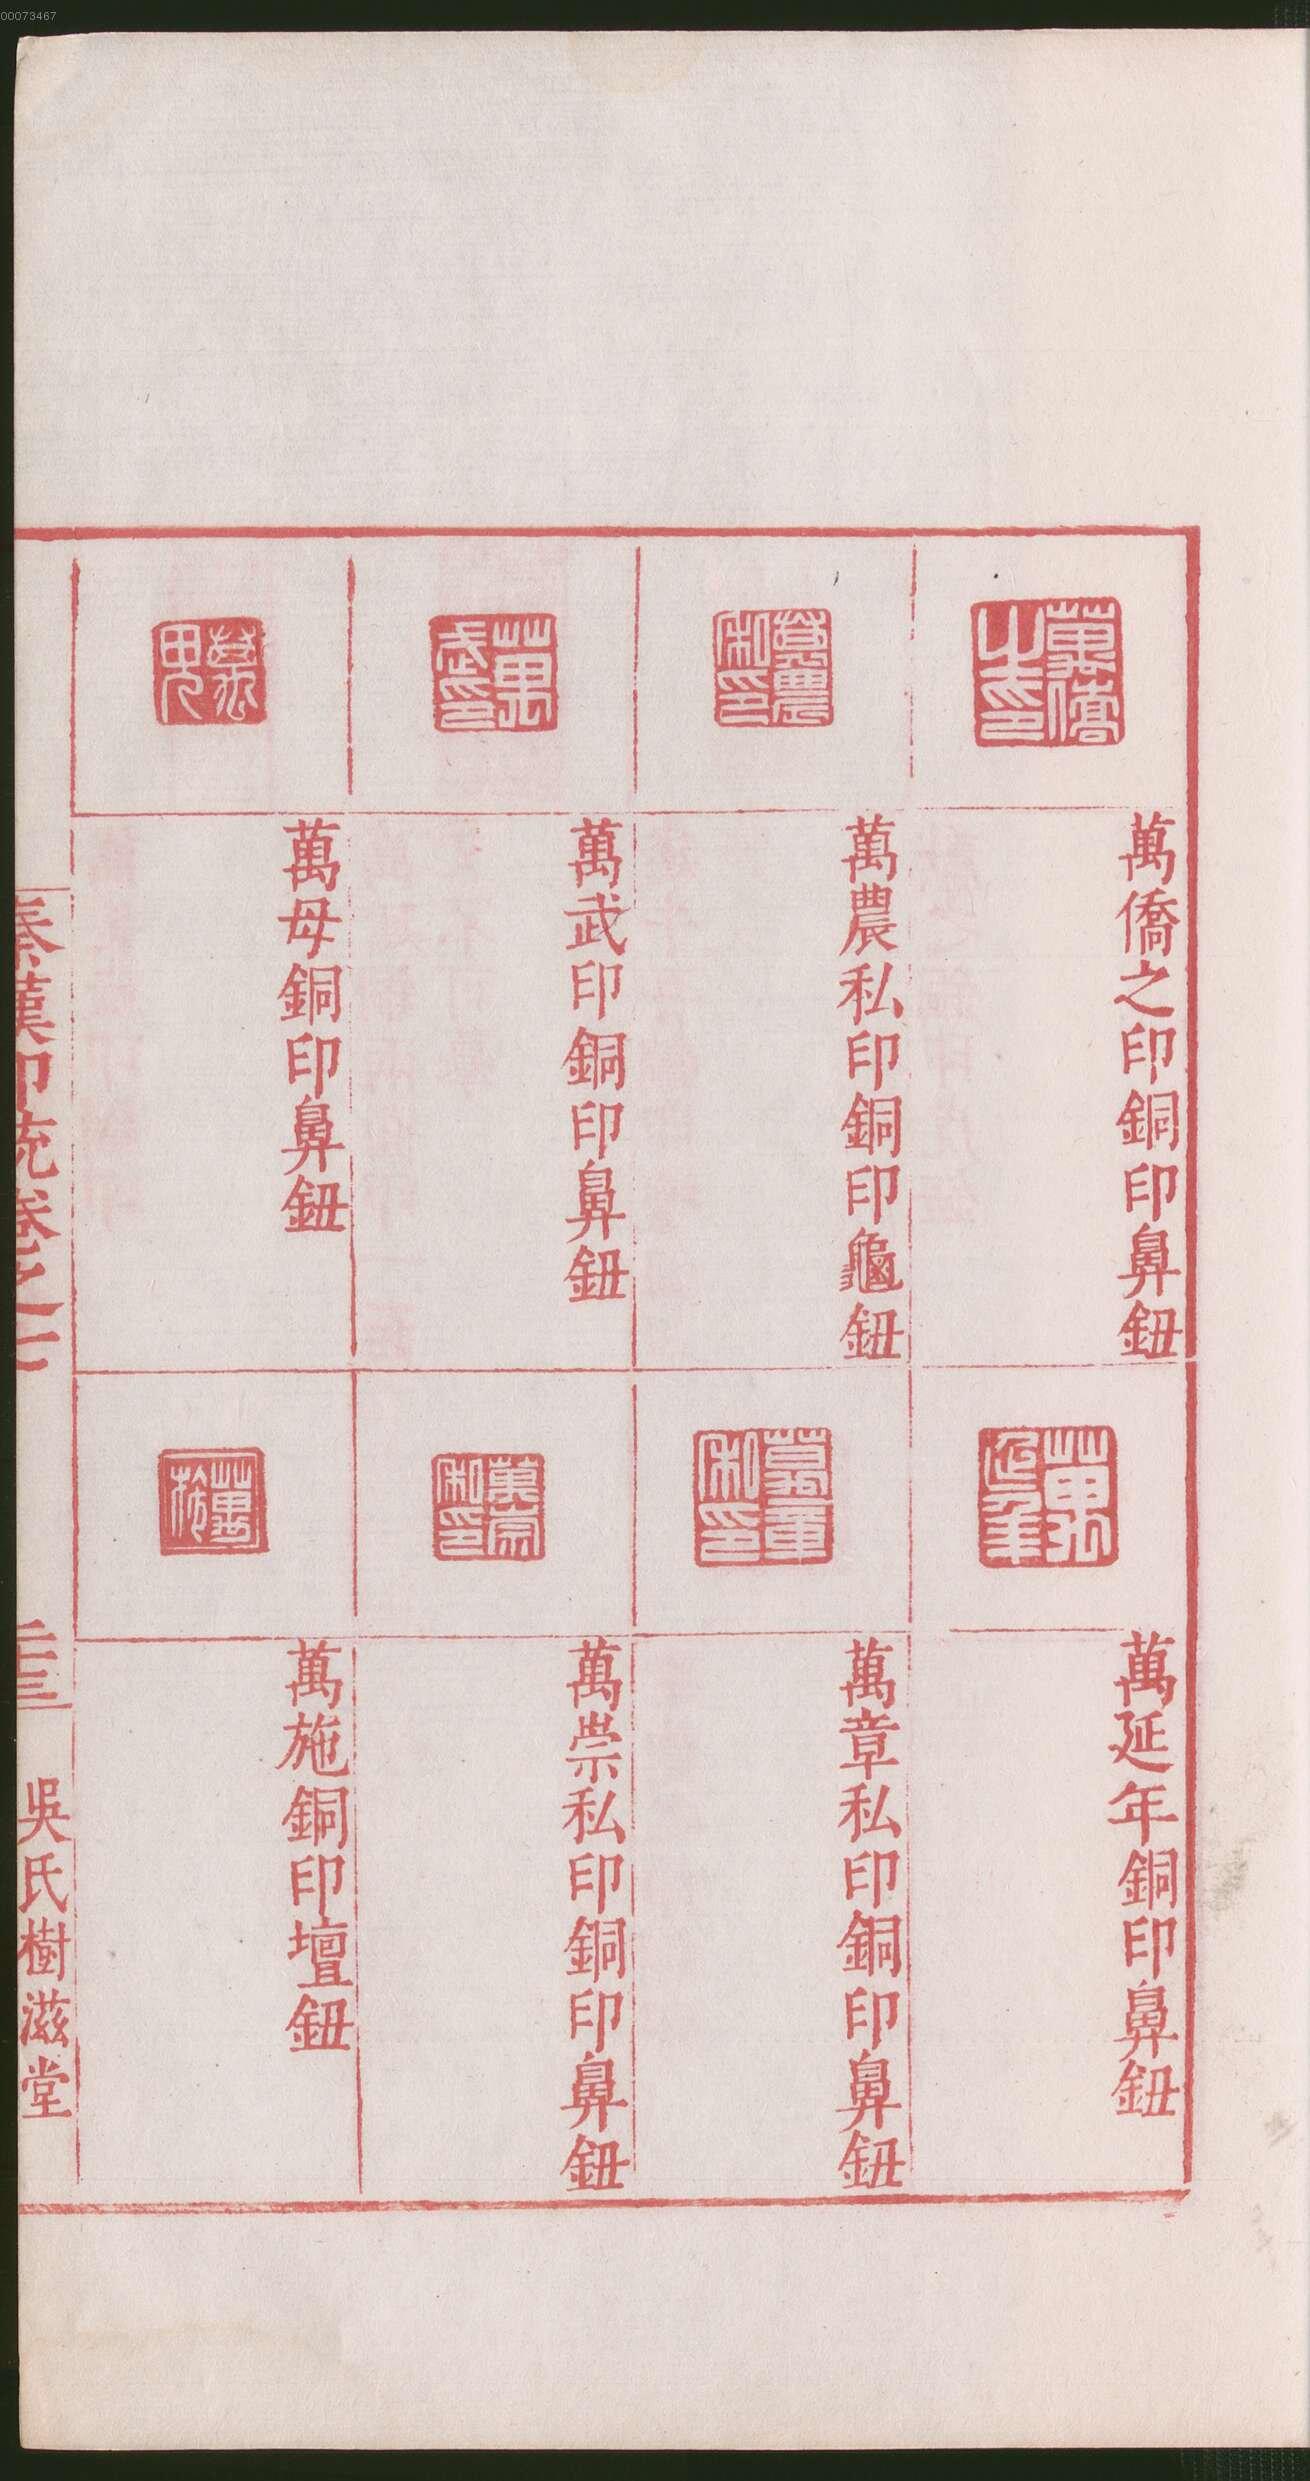 00073467
萬僑之印銅印鼻鈕
萬農私印銅印龜鈕
萬武印銅印鼻鈕
萬母銅印鼻鈕
萬延年銅印鼻鈕
萬章私印銅印鼻鈕
萬崇私印銅印鼻鈕
萬施銅印壇鈕
秦漢印統卷之七
二十三
吳氏樹滋堂